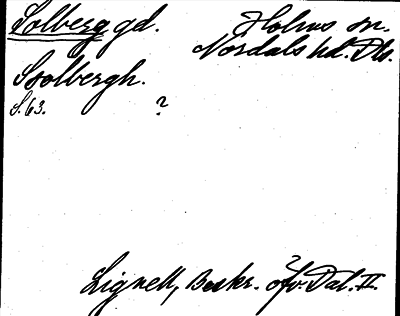 Solberg gd. Holms sn.
Nordals hd. Dls.
Ssolbergh.
S. 63. ?
Lignell, Beskr. öfv. Dal. II.